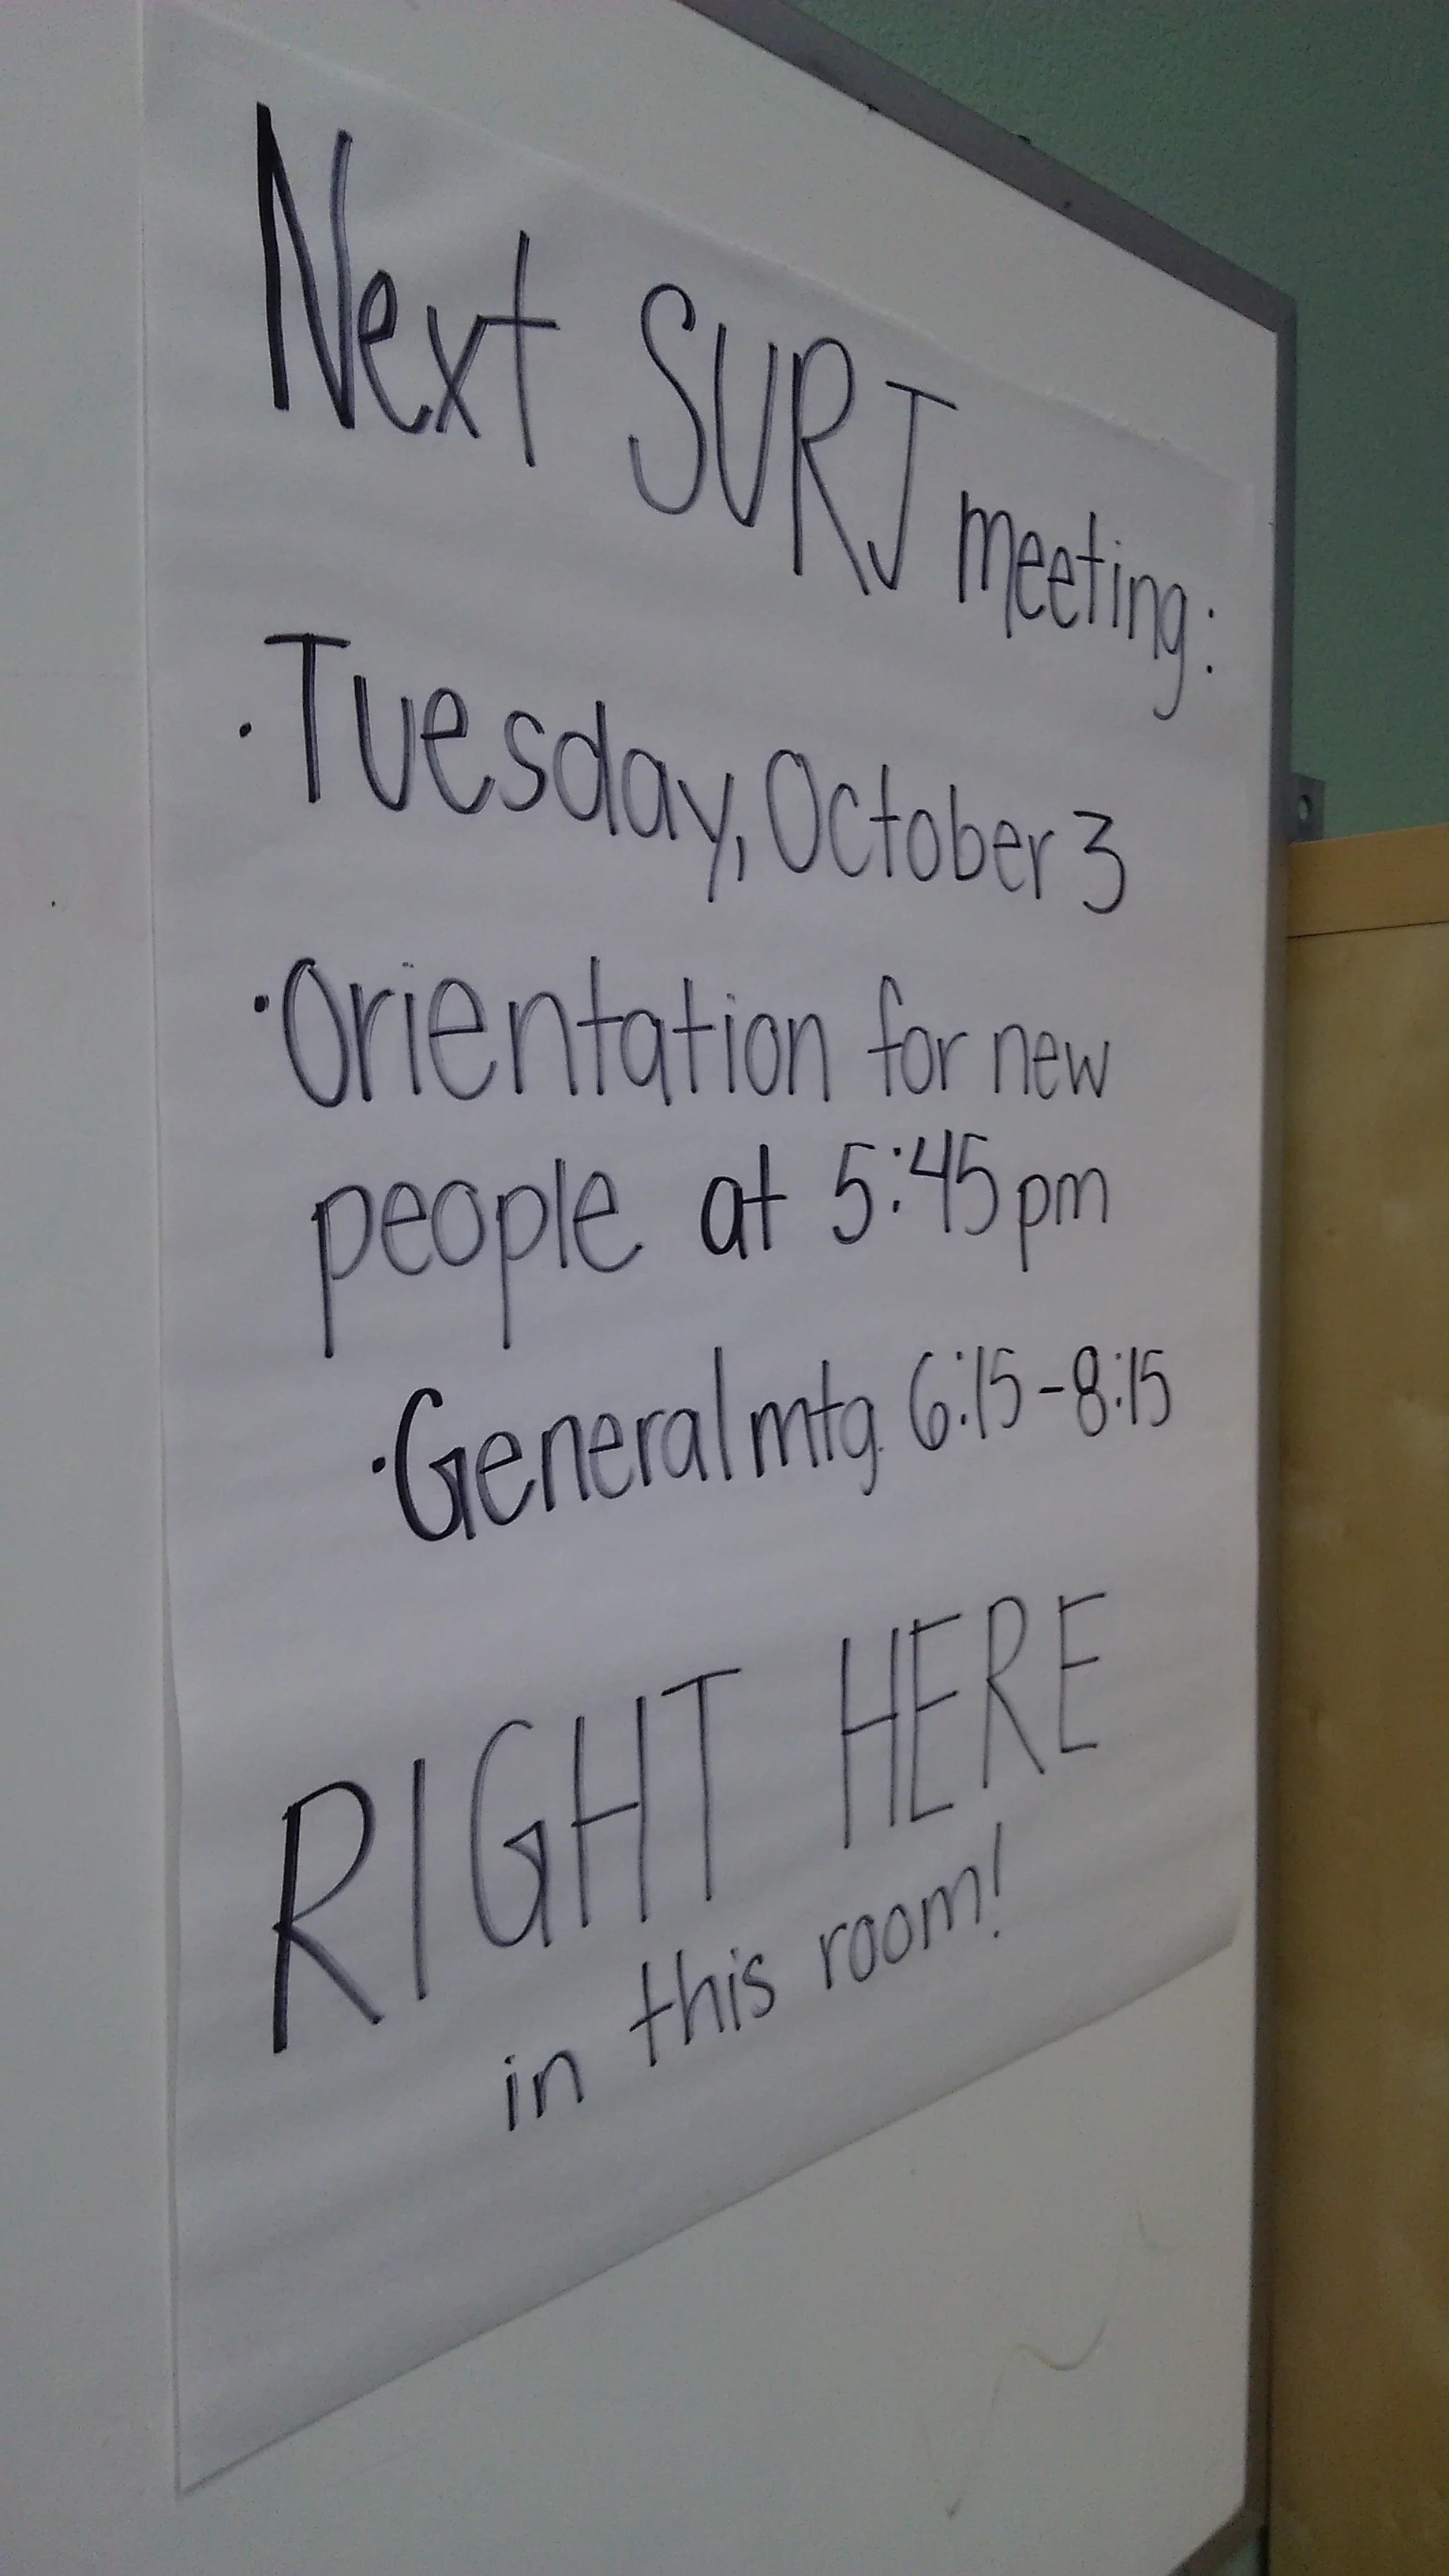 Next SURJ meeting:
· Tuesday, October 3
· Orientation for new
people at 5:45pm
· General mtg. 6:15-8:15
RIGHT HERE
in this room!